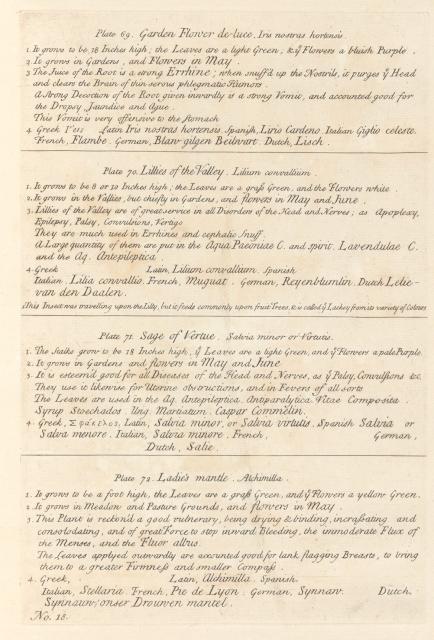 Plate 69. Garden Flower de-luce. Iris nostras hortensis.
1. It grows to be 18 Inches high; the Leaves are a light Green, & ÿ Flowers a bluish Purple.
2. It grows in Gardens, and Flowers in May.
3 The Juice of the Root is a strong Errhine; when snuff'd up the Nostrils, it purges ÿ Head
and clears the Brain of thin serous phlegmatic Humors.
A Strong Decoction of the Root given inwardly is a strong Vomit, and accounted good for
the Dropsy, Jaundice and Ague.
This Vomit is very offensive to the Stomach
4. Greek Latin Iris nostras hortensis. Spanish, Lirio Cardeno, Italian Giglio celeste.
French, Flambe. German, Blaw gilgen Beilwurt. Dutch, Lisch.
Plate 70. Lillies of the Valley. Lilium convallium.
1. It grows to be 8 or 10 Inches high; the Leaves are a grass Green, and the Flowers white.
2. It grows in the Vallies, but chiefly in Gardens, and flowers in May and June.
3. Lillies of the Valley are of great service in all Disorders of the Head and Nerves; as Apoplexy,
Epilepsy, Palsy, Convulsions, Vertigo
They are much used in Errhines and cephalic Snuff.
A Large quantity of them are put in the Aqua Paeoniae C. and spirit. Lavendulae C.
and the Aq. Antepileptica.
4. Greek Latin, Lilium convallium. Spanish
Italian. Lilia convallio. French, Muguat. German, Reyenblumlin. Dutch Lelie-
van den Daalen.
This Insect was travelling upon the Lilly, but it feeds commonly upon fruit Trees, it is called ÿ Lackey from its variety of Colours
Plate 71. Sage of Vertue. Salvia minor or Virtutis.
1. The Stalks grow to be 18 Inches high, ÿ Leaves are a light Green, and ÿ Flowers a pale Purple.
2. It grows in Gardens and flowers in May and June.
3. It is esteem'd good for all Diseases of the Head and Nerves, as ÿ Palsy, Convulsions &c.
They use it likewise for Uterine obstructions, and in Fevers of all sorts
The Leaves are used in the Aq. Antepileptica. Antiparalytica. Vitae Composita.
Syrup Stoechados. Ung. Martiatum. Caspar Commelin.
4. Greek, Σφάκελος, Latin, Salvia minor, or Salvia virtutis, Spanish Salvia or
Salva menore. Italian, Salvia minore. French, German,
Dutch, Salie.
Plate 72. Ladie's mantle. Alchimilla.
1. It grows to be a foot high, the Leaves are a grass Green, and ÿ Flowers a yellow Green.
2. It grows in Meadow and Pasture Grounds, and flowers in May.
3 This Plant is reckon'd a good vulnerary, being drying & binding, incrassating and
consolodating, and of great Force to stop inward Bleeding, the immoderate Flux of
the Menses, and the Fluor albus.
The Leaves applyed outwardly are accounted good for lank flagging Breasts, to bring
them to a greater Firmness and smaller Compass.
4. Greek, Latin, Alchimilla. Spanish.
Italian, Stellaria French, Pie de Lyon. German, Synnaw. Dutch.
Synnauw, onser Drouwen mantel.
No. 18.